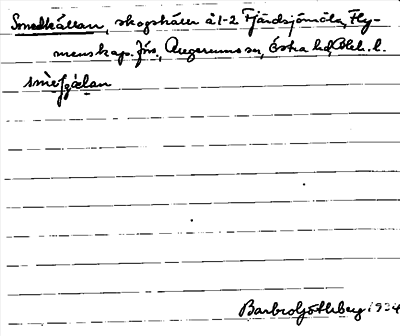 Smedkällan, skogskälla å 1-2 Fjärdsjömåla, Fly-
menskap. förs., Augerums sn, Östra hd, Blek. l.
Barbro Götlberg 1934